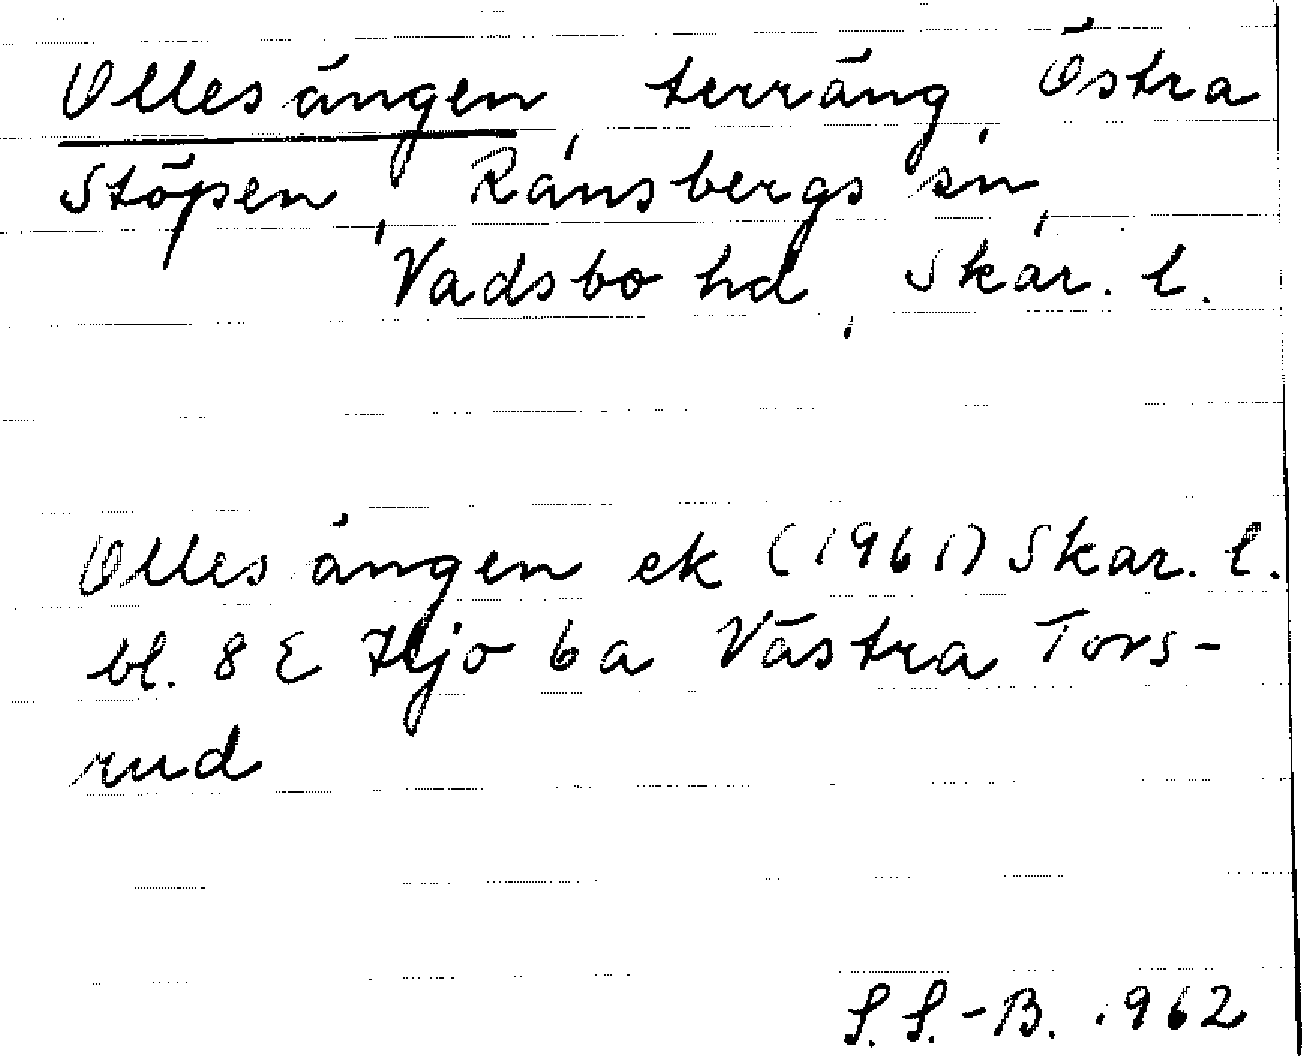 Ollesängen, terräng, Östra
Stöpen, Ransbergs sn,
Vadsbo hd, Skar. l.
Ollesängen ek (1961) Skar. l.
bl. 8 E Hjo 6a Västra Tors-
rud
S. S.-B. 1962